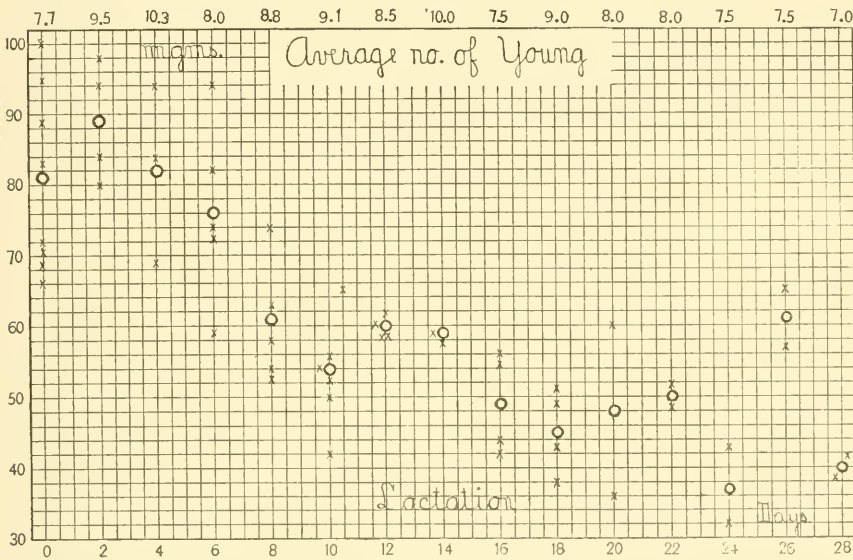 7.7 9.5 10.3 8.0 8.8 9.1 8.5 10.0 7.5 9.0 8.0 8.0 7.5 7.5 7.0
mgms. Average no. of Young
100
90
80
70
60
50
40
Lactation
Days
30
0 2 4 6 8 10 12 14 16 18 20 22 24 26 28